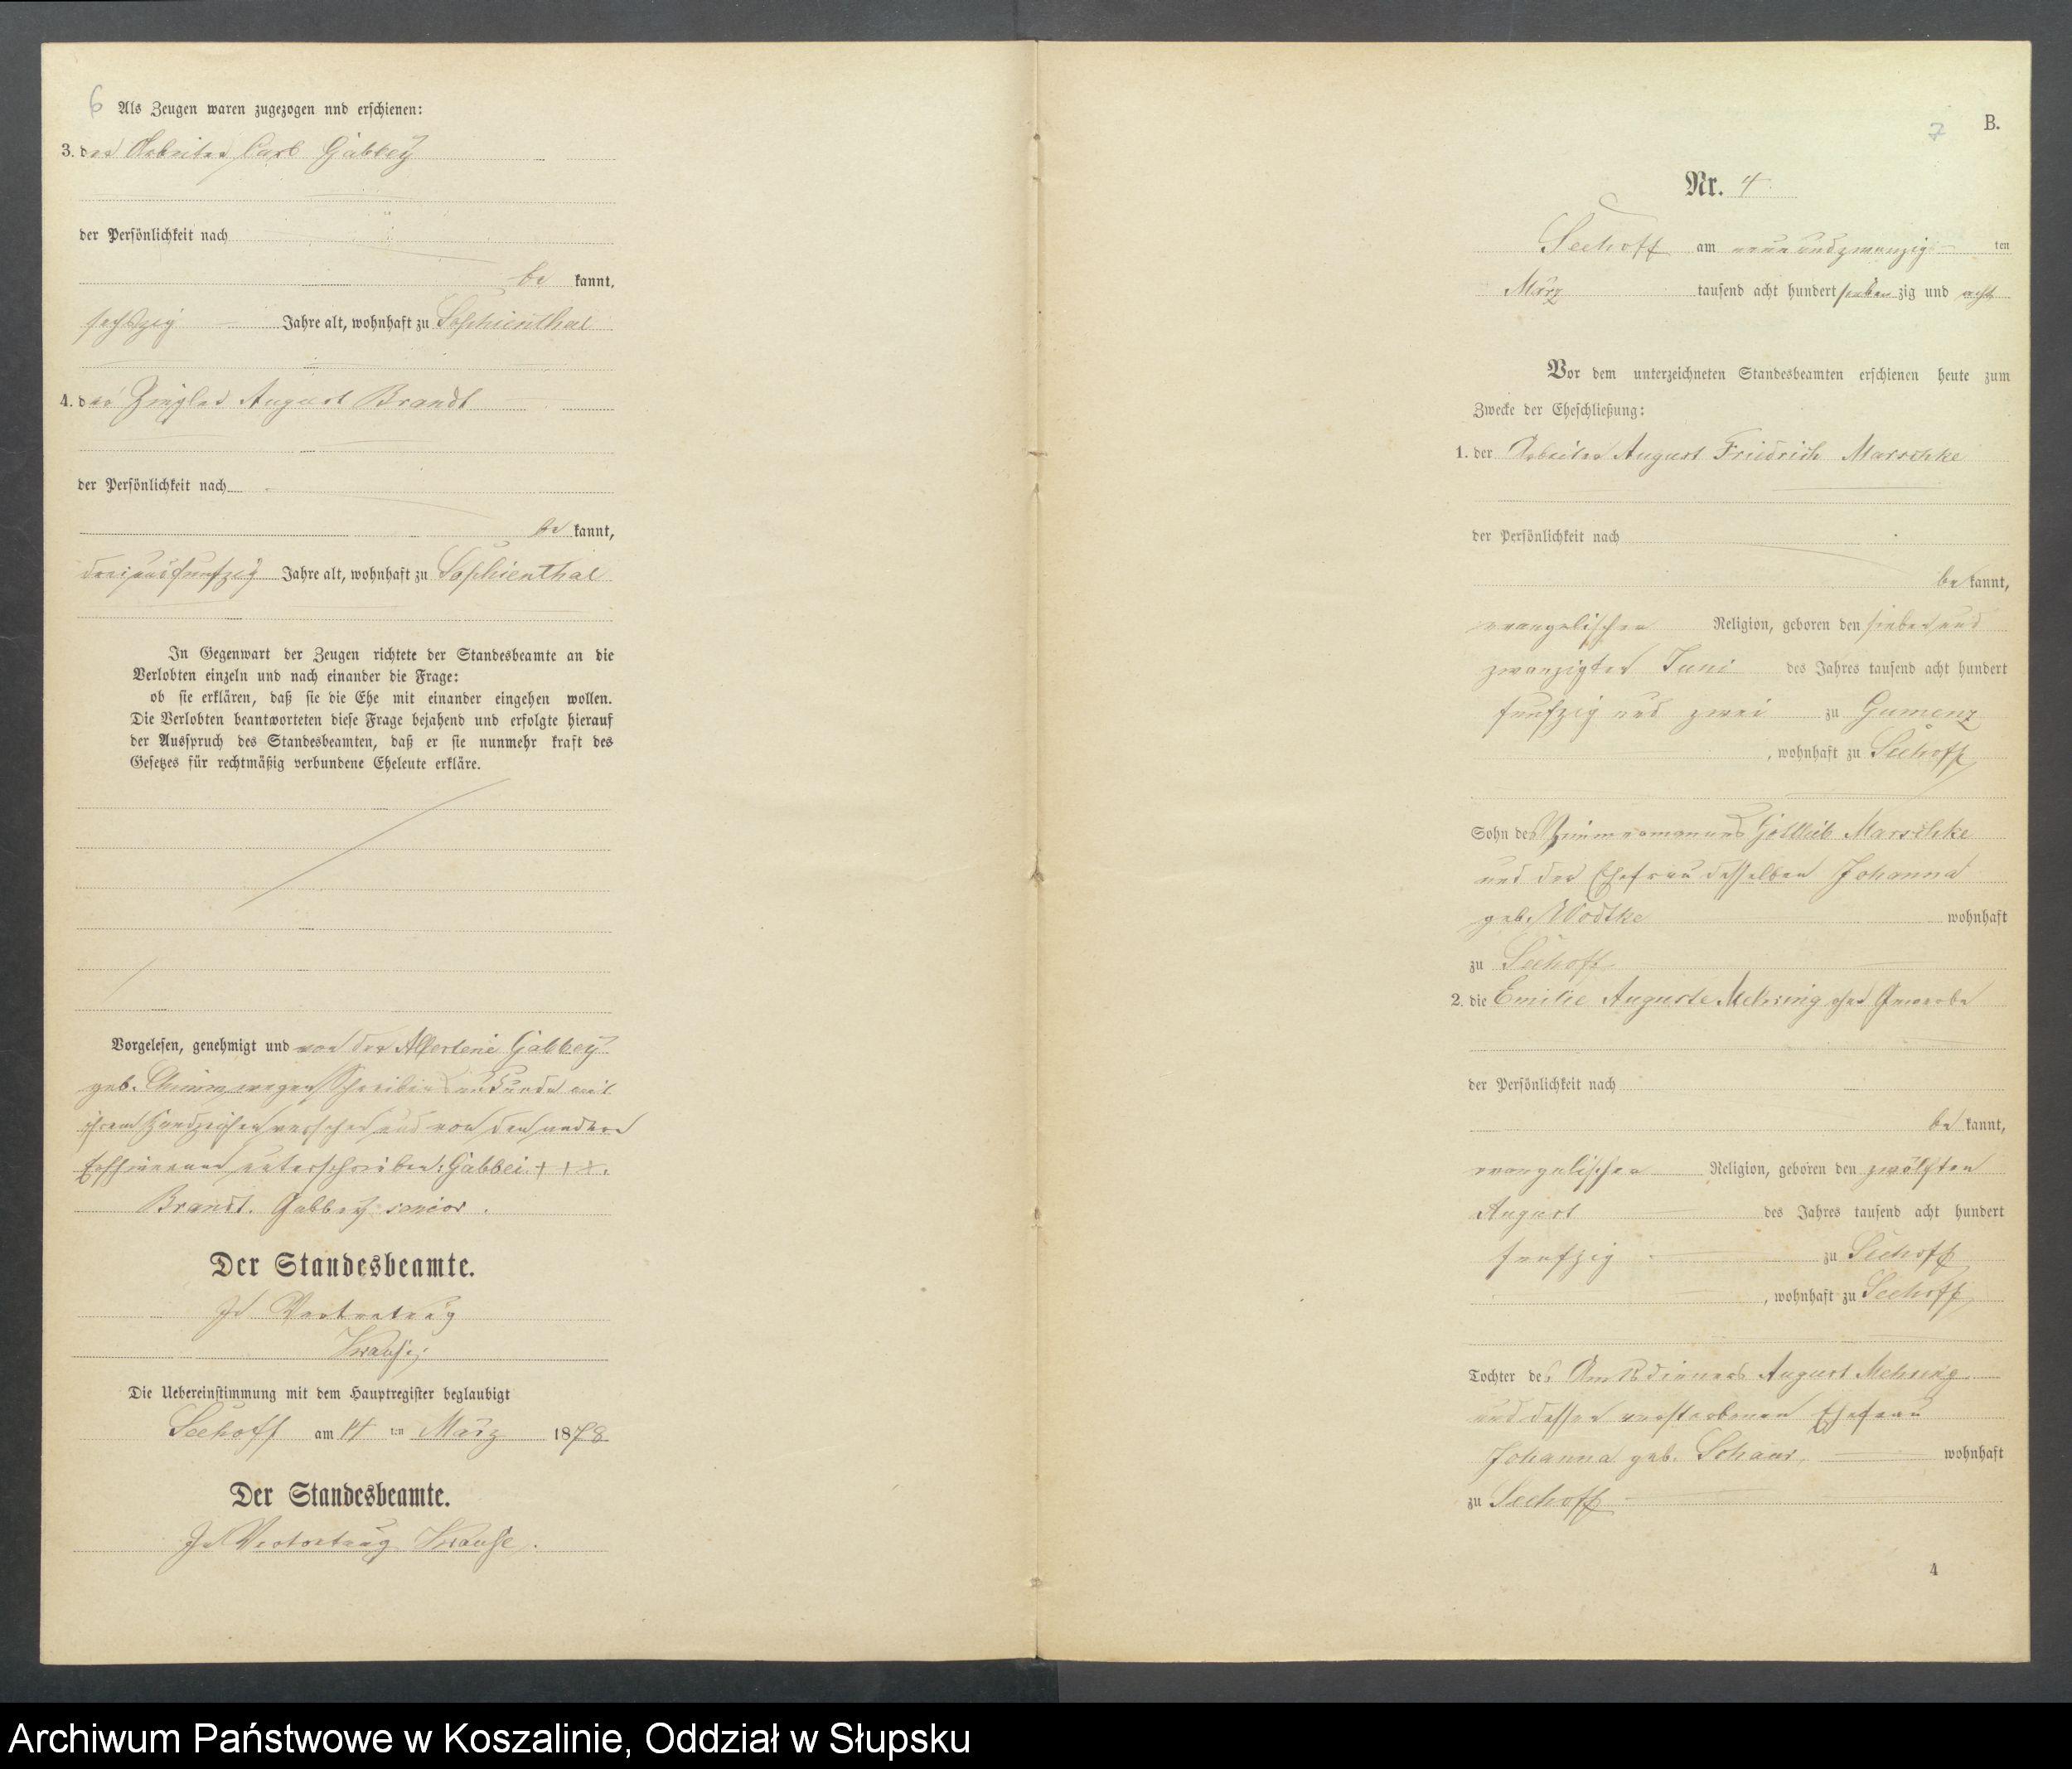 6
Als Zeugen waren zugezogen nnd erschienen:
3. der Arbeiter Carl Gabbey
der Persönlichkeit nach
be kannt,
sechszig Jahre alt, wohnhaft zu Sophienthal
4. der Ziegler August Brandt
der Persönlichkeit nach
be kannt,
dreiundfunfzig Jahre alt, wohnhaft zu Sophienthal
In Gegenwart der Zeugen richtete der Standesbeamte an die
Verlobten einzeln und nach einander die Frage:
ob sie erklären, daß sie die Ehe mit einander eingehen wollen.
Die Verlobten beantworteten diese Frage bejahend und erfolgte hierauf
der Ausspruch des Standesbeamten, daß er sie nunmehr kraft des
Gesetzes für rechtmäßig verbundene Eheleute erkläre.
Vorgelesen, genehmigt und von der Gabbey
geb. wegen Schreibensunkunde mit
ihrem Handzeichen versehen und von den andern
Erschienenen unterschrieben: Gabbei. + + +.
Brandt. Gabbey senior.
Der Standesbeamte.
In Vertretung
Krause.
Die Uebereinstimmung mit dem Hauptregister beglaubigt
Seehoff am 14 ten März 1878
Der Standesbeamte.
In Vertretung Krause.
7
B.
Nr. 4
Seehoff am neunundzwanzig ten
März tausend acht hundert sieben zig und acht
Vor dem unterzeichneten Standesbeamten erschienen heute zum
Zwecke der Eheschließung:
1. der Arbeiter August Friedrich Marschke
der Persönlichkeit nach
be kannt,
evangelischer Religion, geboren den siebenund
zwanzigsten Juni des Jahres tausend acht hundert
funfzig und zwei zu Gumenz
, wohnhaft zu Seehoff
Sohn des Zimmermanns Gottlieb Marschke
und der Ehefrau desselben Johanna
geb. Wodtke wohnhaft
zu Seehoff
2. die Emilie Auguste Mehring ohne Gewerbe
der Persönlichkeit nach
be kannt,
evangelischer Religion, geboren den zwölften
August des Jahres tausend acht hundert
funfzig zu Seehoff
, wohnhaft zu Seehoff
Tochter des Amtsdieners August Mehring
und dessen verstorbenen Ehefrau
Johanna geb. wohnhaft
zu Seehoff
4
Archiwum Państwowe w Koszalinie, Oddział w Słupsku